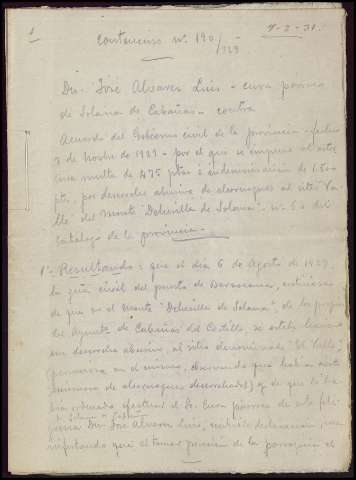 7-2-31.
Contencioso nº. 190/929
Dn. José Alvarez Luis - cura párroco
de Solana de Cabañas - contra
Acuerdo del Gobierno civil de la provincia - fecha
7 de Novbre de 1929 - por el que se impone al actor
una multa de 475 ptas e indemnización de
pts. por descorche abusivo de alcornoques al sitio Va-
lle del monte "Dehesilla de Solana", nº 6 del
Catálogo de la provincia.
1º - Resultando: que el día 6 de Agosto de 1929
la guardia civil del puesto de Deleitosa,
de que en el monte "Dehesilla de Solana", de los propios
del Aynto de Cabañas del Castillo se estaba llevando
un descorche abusivo, al sitio denominado "El Valle"
personose en el mismo, observando que había
número de alcornoques descorchados y de que lo ha-
bía ordenado efectuar el Sr. Cura párroco de esta feli-
gresía Dn. José Alvarez Luis, ma-
nifestando que al tomar posesión de la parroquia el